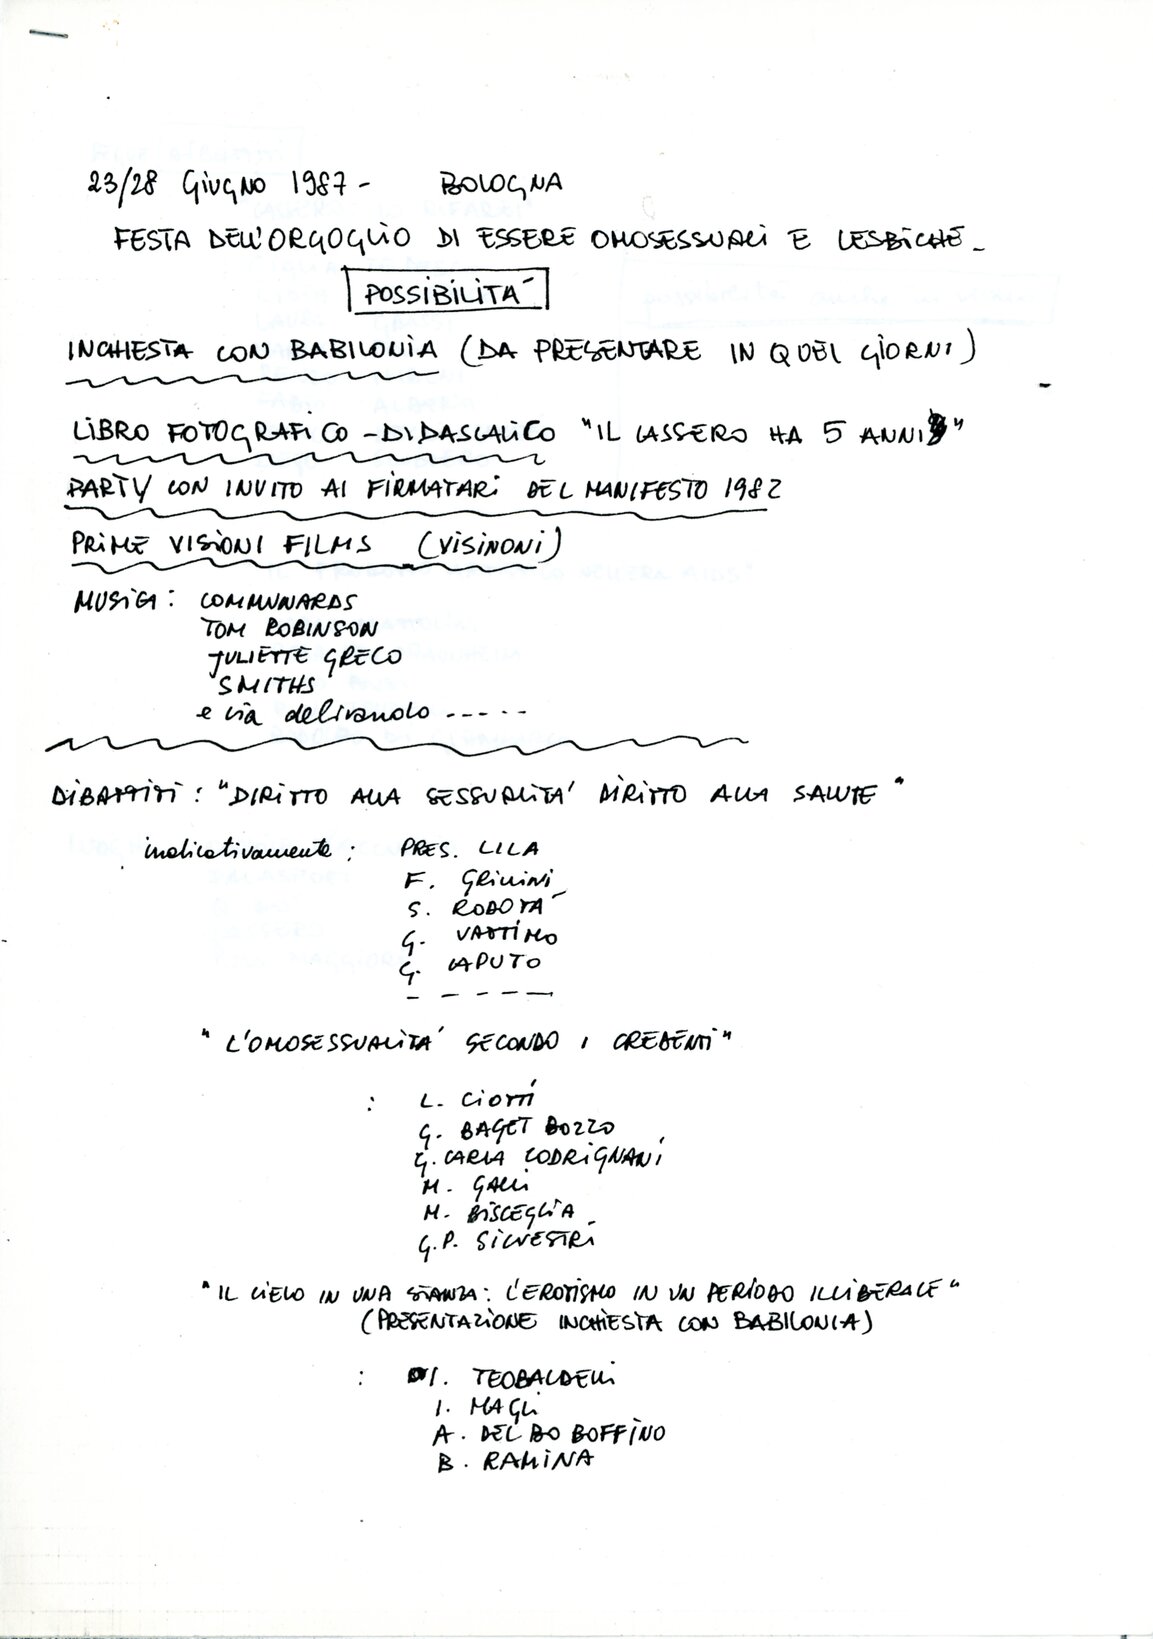 23/28 GIUGNO 1987 - BOLOGNA
FESTA DELL'ORGOGLIO DI ESSERE OMOSESSUALI E LESBICHE -
POSSIBILITA'
INCHIESTA CON BABILONIA (DA PRESENTARE IN QUEI GIORNI)
LIBRO FOTOGRAFICO - DIDASCALICO "IL CASSERO HA 5 ANNI"
PARTY CON INVITO AI FIRMATARI DEL MANIFESTO 1982
PRIME VISIONI FILMS (VISINONI)
MUSICA: COMMUNARDS
TOM ROBINSON
JULIETTE GRECO
SMITHS
e via delirando -----
DIBATTITI: "DIRITTO ALLA SESSUALITA' DIRITTO ALLA SALUTE"
indicativamente: PRES. LILA
F. GRILLINI
S. RODOTA'
G. VATTIMO
G. CAPUTO
- - - - -
"L'OMOSESSUALITA' SECONDO I CREDENTI"
: L. CIOTTI
G. BAGET BOZZO
G. CARLA CODRIGNANI
M. GALLI
M. BISCEGLIA
G.P. SILVESTRI
"IL CIELO IN UNA STANZA: L'EROTISMO IN UN PERIODO ILLIBERALE"
(PRESENTAZIONE INCHIESTA CON BABILONIA)
: I. TEOBALDELLI
I. MAGLI
A. DEL BO BOFFINO
B. RAMINA